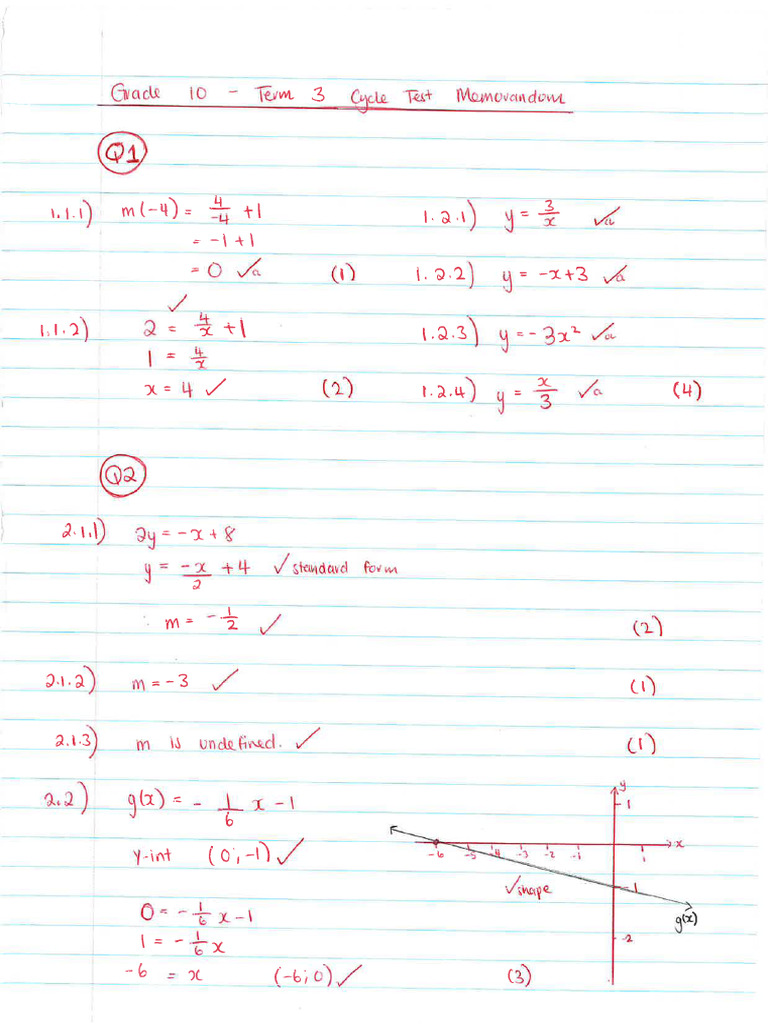 Grade 10 - Term 3 Cycle Test Memorandum
Q1
1.1.1) m(-4) = 4/-4 + 1
= -1 + 1
= 0 ✓a (1)
1.1.2) ✓
2 = 4/x + 1
1 = 4/x
x = 4 ✓ (2)
1.2.1) y = 3/x ✓a
1.2.2) y = -x+3 ✓a
1.2.3) y = -3x² ✓a
1.2.4) y = x/3 ✓a (4)
Q2
2.1.1) 2y = -x + 8
y = -x/2 + 4 ✓ standard form
∴ m = -1/2 ✓ (2)
2.1.2) m = -3 ✓ (1)
2.1.3) m is undefined. ✓ (1)
2.2) g(x) = - 1/6 x - 1
y-int (0; -1) ✓
0 = -1/6 x - 1
1 = -1/6 x
-6 = x (-6; 0) ✓ (3)
y
1
-6 -5 -4 -3 -2 -1 1 x
✓shape
-1
g(x)
-2